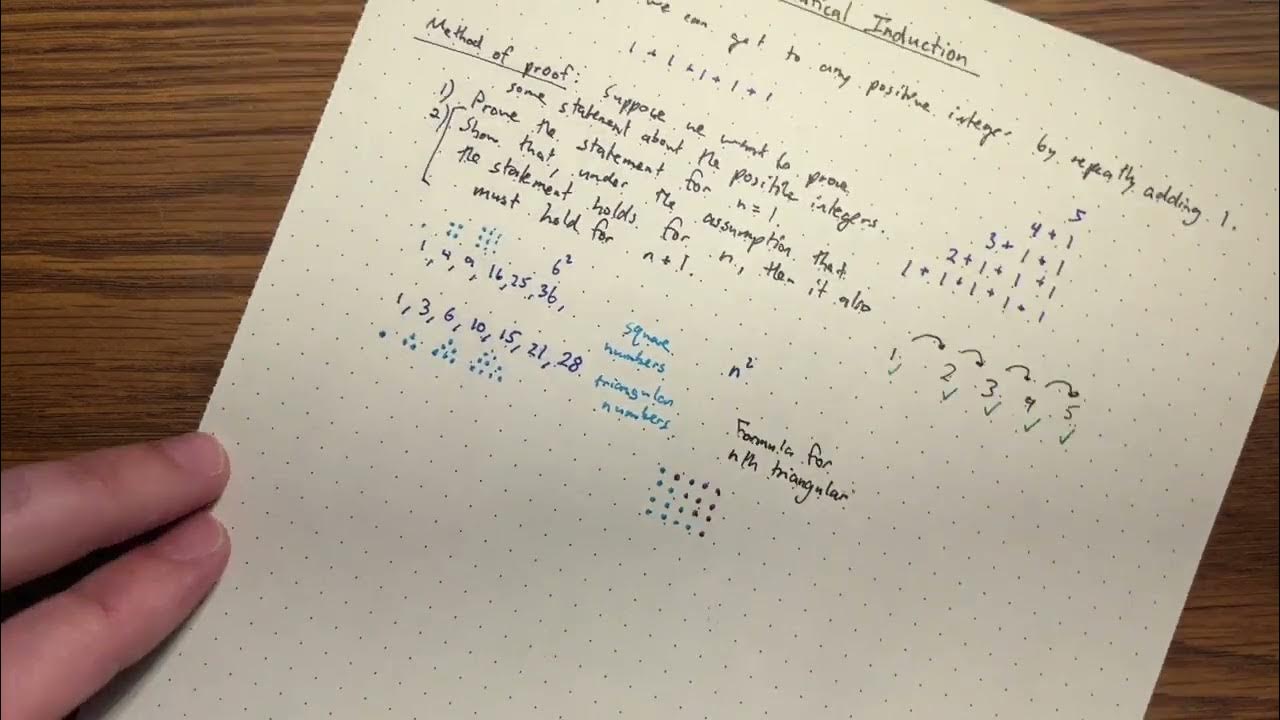 atical Induction
we can get to any positive integer by repeatly adding 1.
1 + 1 + 1 + 1 + 1
Method of proof: Suppose we want to prove
some statement about the positive integers.
1) Prove the statement for n = 1
2) Show that, under the assumption that
the statement holds for n, then it also
must hold for n + 1.
5
4 + 1
3 + 1 + 1
2 + 1 + 1 + 1
1 + 1 + 1 + 1 + 1
6²
1, 4, 9, 16, 25, 36,
1, 3, 6, 10, 15, 21, 28
square
numbers
triangular
numbers
n²
1, 2, 3, 4, 5
Formula for
nth triangular